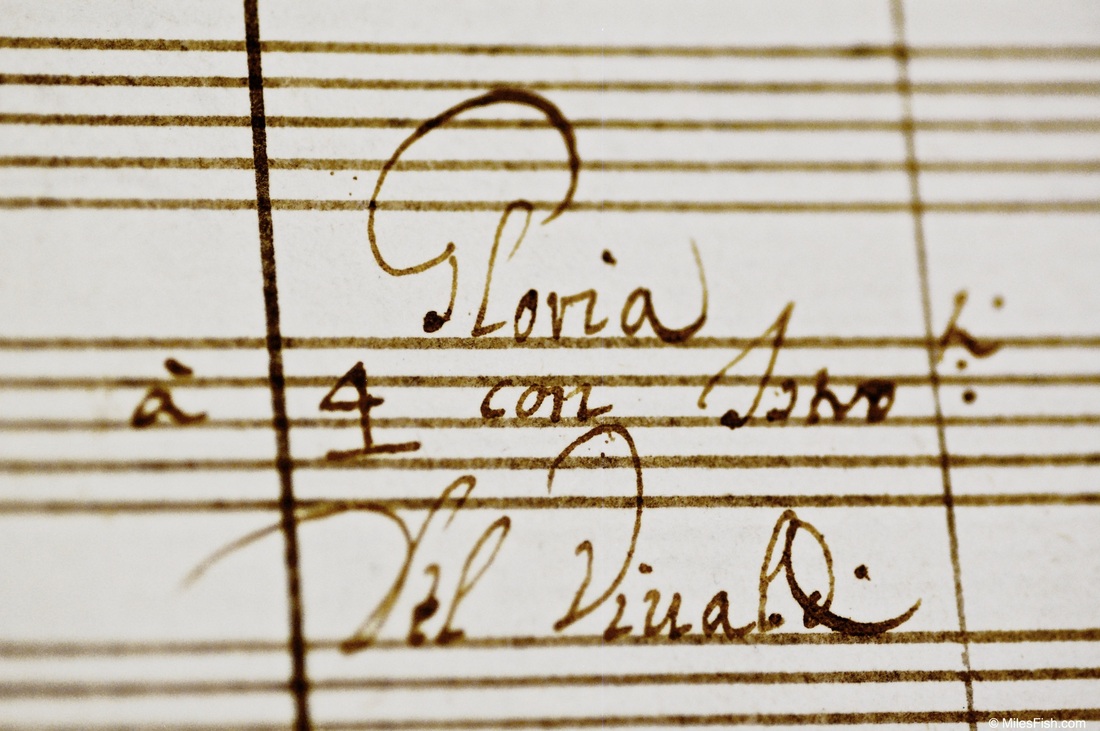 Gloria
à 4 con Istro.ti:
Del Viualdi
© MilesFish.com